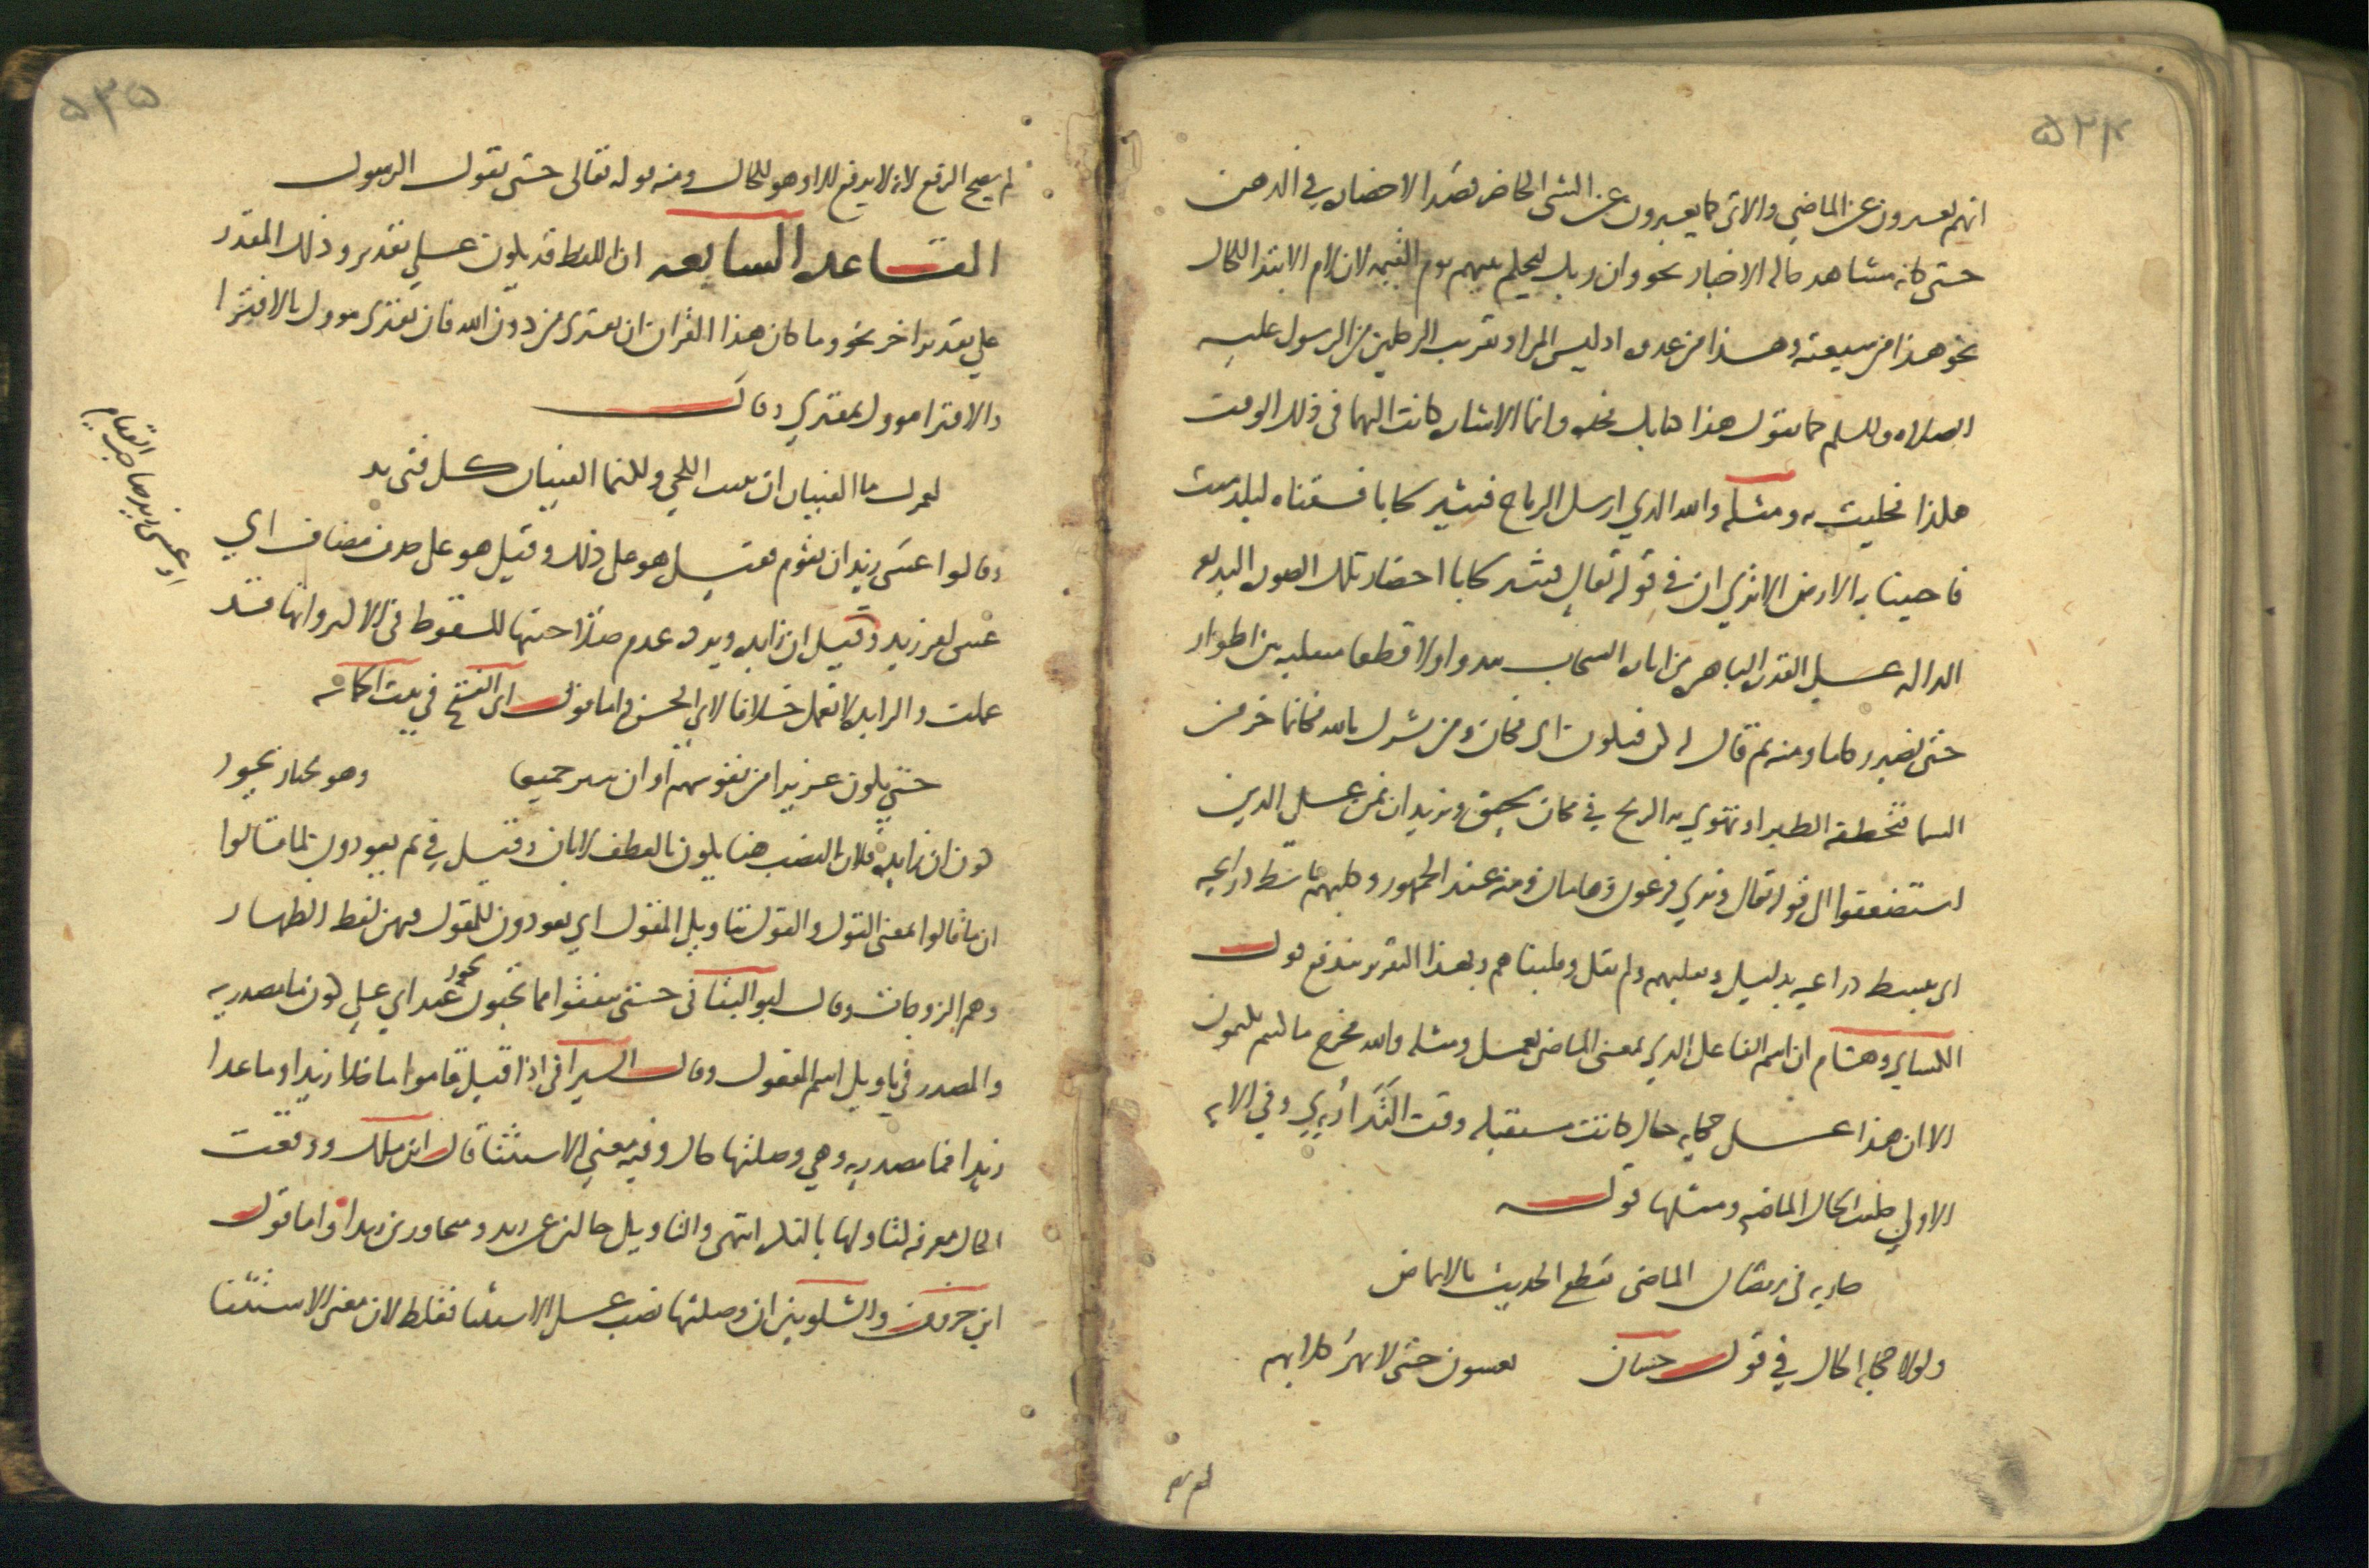 ٥٣٤
انهم يعبرون عن الماضي والاتى كما يعبرون عن الشى الحاضر قصدا لاحضاره في الذهن
حتى كانه مشاهد حاله الاخبار نحو وان ربك ليحكم بينهم يوم القيمه لان لام الابتدا للحال
نحو هذا من شيعته وهذا من عدوه اذ ليس المراد تقريب الرجلين من الرسول عليه
الصلاه والسلم كما تقول هذا كتابك فخذه وانما الاشاره كانت اليهما فى ذلك الوقت
هكذا فحكيت به ومثله والله الذي ارسل الرياح فتثير سحابا فسقناه لبلد ميت
فاحيينا به الارض الا ترى ان في قوله تعالى فتثير سحابا احضار تلك الصوره البديعه
الداله على القدره الباهره من اثاره السحاب يبدو اولا قطعا ثم بين اطوار
حتى تصير ركاما ومنه ثم قال له كن فيكون اى فكان ومن يشرك بالله فكانما خر من
السما فتخطفه الطير او تهوي به الريح في مكان سحيق ونريد ان نمن على الذين
استضعفوا الى قوله تعالى ونري فرعون وهامان ومنه عند الجمهور وكلبهم باسط ذراعيه
اى يبسط ذراعيه بدليل ونقلبهم ولم يقل وقلبناهم وبهذا التقرير يندفع قول
الكساي وهشام ان اسم الفاعل الذي بمعنى الماضي يعمل ومثله والله مخرج ما كنتم تكتمون
الا ان هذا على حكايه حال كانت مستقبله وقت التدارء وفي الايه
الاولى حكيت الحال الماضيه ومثلها قوله
جاريه في رمضان الماضى تقطع الحديث بالايماض
ولولا حكايه الحال في قول حسان يغشون حتى لا تهر كلابهم
لم يصح
٥٣٥
لم يصح الرفع لانه لا يرفع الا وهو للحال ومنه قوله تعالى حتى يقول الرسول
القاعده السابعه ان اللفظ قد يكون على تقدير وذلك المقدر
على تقدير اخر نحو وما كان هذا القران ان يفترى من دون الله فان يفترى موول بالافترا
والافترا موول بمفتري وقال
لعمرك ما الفتيان ان تنبت اللحي ولكنما الفتيان كل فتى ند
وقالوا عسى زيد ان يقوم فقيل هو على ذلك وقيل هو على حذف مضاف اي
او عسى زيد صاحب القيام
عسى امر زيد وقيل ان زايده ويرده عدم صلاحيتها للسقوط في الاكثر وانها قد
عملت والزايده لا تعمل خلافا لابى الحسن واما قول ابى الفتح في بيت الحماسه
حتى يكون عزيزا من نفوسهم او ان يبين جميعا وهو مختار يجوز
كون ان زايده فلان النصب هنا يكون بالعطف لا بان وقيل في ثم يعودون لما قالوا
ان ما قالوا بمعنى القول والقول بتاويل المقول اي يعودون للمقول فيهن لفظ الظهار
وهم الزوجات وقال ابو البقا فى حتى تنفقوا مما تحبون يجوز عند ابي على كون ما مصدريه
والمصدر في تاويل اسم المفعول وقال السيرافى اذا قيل قاموا ما خلا زيدا وما عدا
زيدا فما مصدريه وهي وصلتها حال وفيه معنى الاستثنا قال ابن مالك ووقعت
الحال معرفه لتاولها بالنكره انتهى والتاويل خالين عن زيد ومتجاوزين زيدا واما قول
ابن خروف والشلوبين ان وصلتها نصب على الاستثنا فغلط لان معنى الاستثنا